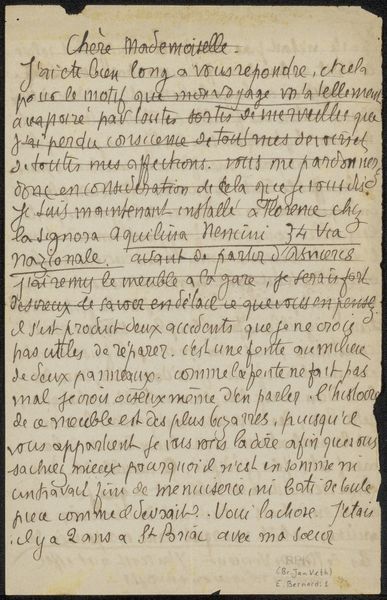 Chère Mademoiselle.
J'ai été bien long a vous repondre, et cela
pour le motif que mon voyage m'a tellement
accaparé par toutes sortes de merveilles que
j'ai perdu conscience de tous mes devoirs et
de toutes mes affections. vous me pardonnez
donc en consideration de cela que je vous dis
Je suis maintenant installé a Florence chez
la signora aquilina Nencini 34 via
nazionale. avant de partir d'Asnieres
j'ai remis le meuble a la gare, je serais fort
desireux de savoir en détail ce que vous en pensez.
il s'est produit deux accidents que je ne crois
pas utiles de réparer. c'est une fente au milieu
de deux panneaux. comme la fente ne fait pas
mal je crois oiseux même d'en parler. l'histoire
de ce meuble est des plus bizarres, puisqu'il
vous appartient je vais vous la dire afin que vous
sachiez mieux pourquoi il n'est en somme ni
un travail fini de menuiserie, ni bati de toute
piece comme il devrait. Voici la chose. J'étais
il y a 2 ans a St Briac avec ma sœur
(Br. Jan Veth)
E. Bernard: 1